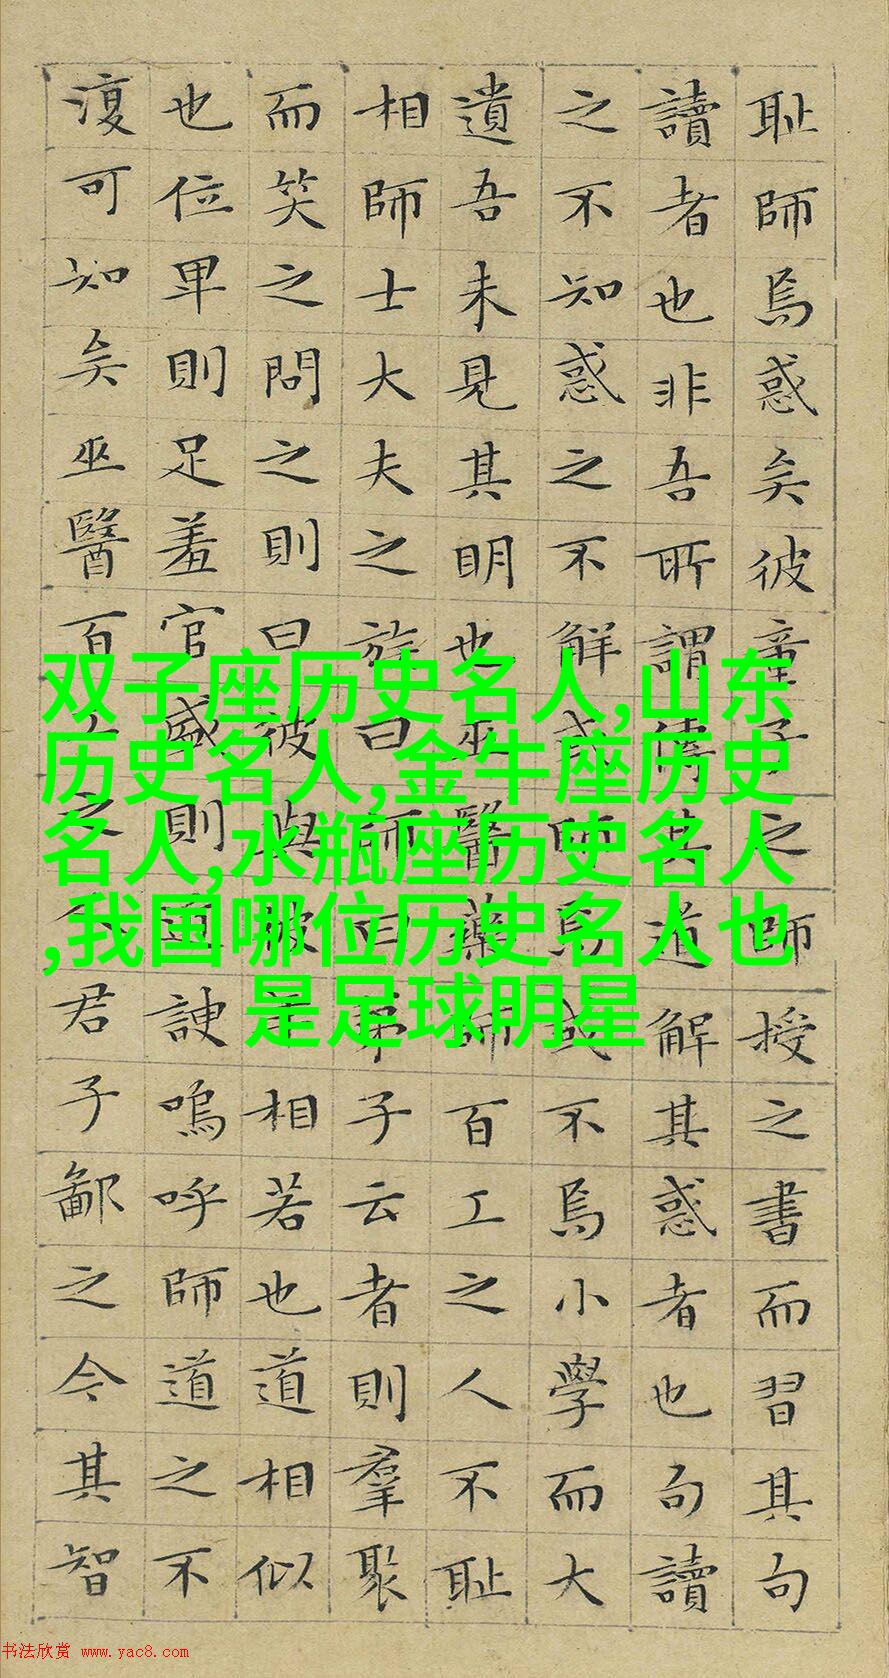 耻師焉惑矣彼童子之師授之書而習其句
讀者也非吾所謂傳其道解其惑者也句讀
之不知惑之不解或師焉或不焉小學而大
遺吾未見其明也巫醫藥師百工之人不耻
相師士大夫之族曰師曰弟子云者則羣聚
而笑之問之則曰彼與彼年相若也道相似
也位卑則足羞官盛則近諛嗚呼師道之不
復可知矣巫醫百工之人君子鄙之今其智
双子座历史名人,山东
历史名人,金牛座历史
名人,水瓶座历史名人
,我国哪位历史名人也
是足球明星
书法欣赏 www.yac8.com